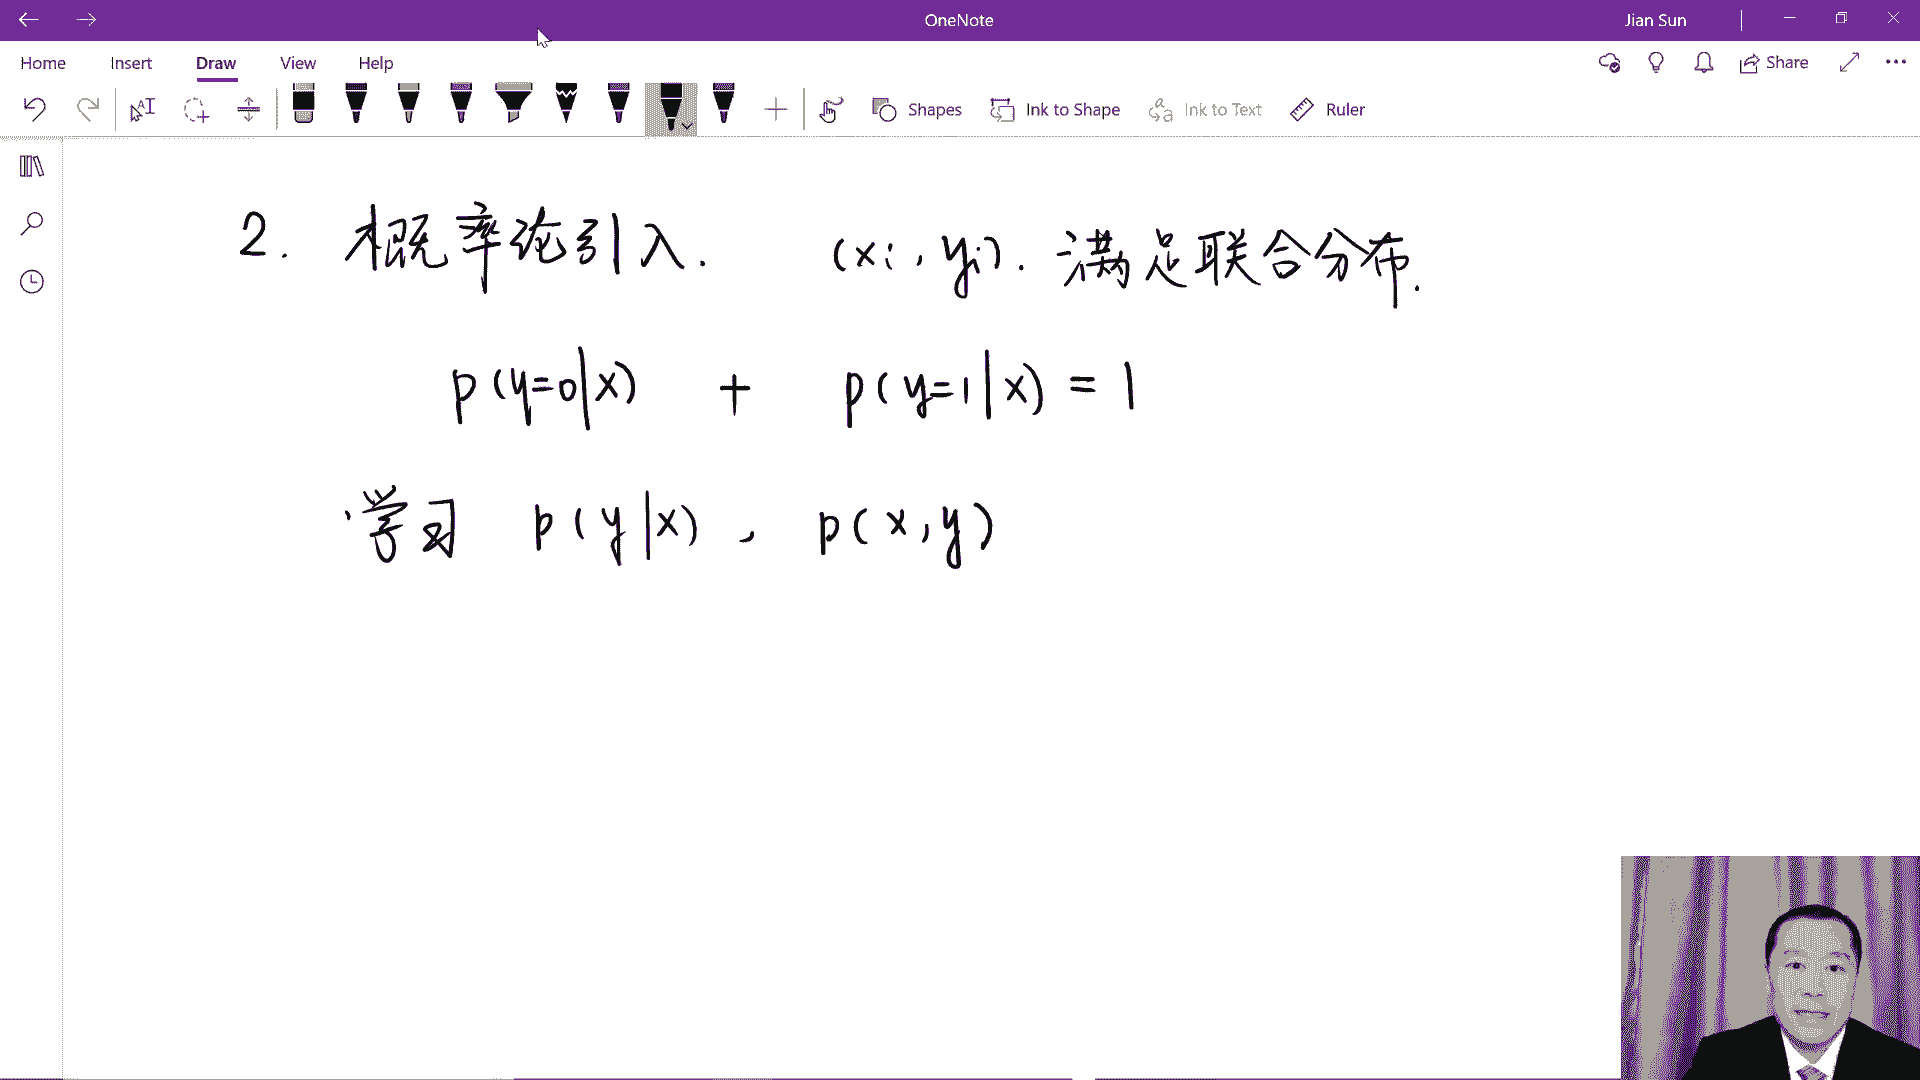 OneNote
Jian Sun
Home Insert Draw View Help
Share
Shapes Ink to Shape Ink to Text Ruler
2. 概率论引入. (xi, yi). 满足联合分布.
p(y=0|x) + p(y=1|x) = 1
·学习 p(y|x), p(x,y)